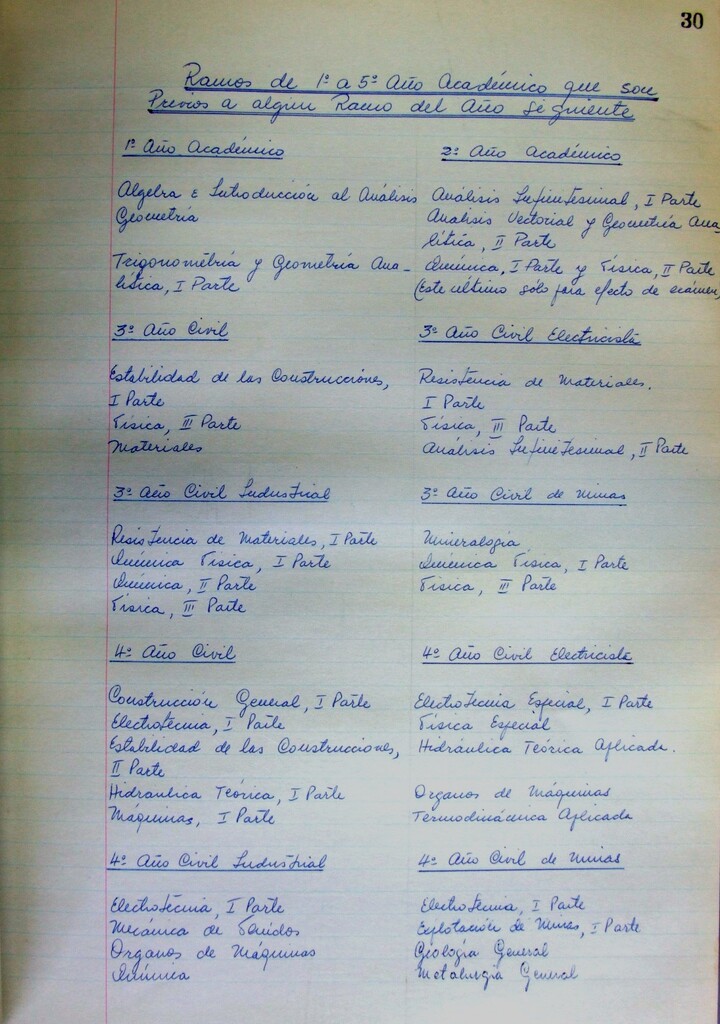 30
Ramos de 1º a 5º Año Académico que son
Previos a algún Ramo del Año Siguiente
1º Año Académico
Algebra e Introducción al Análisis
Geometría
Trigonometría y Geometría Ana-
lítica, I Parte
2º Año Académico
Análisis Infinitesimal, I Parte
Analisis Vectorial y Geometría Ana-
lítica, II Parte
Química, I Parte y Física, II Parte
(Este último sólo para efecto de exámen)
3º Año Civil
Estabilidad de las Construcciones,
I Parte
Física, III Parte
Materiales
3º Año Civil Electricista
Resistencia de Materiales,
I Parte
Física, III Parte
Análisis Infinitesimal, II Parte
3º Año Civil Industrial
Resistencia de Materiales, I Parte
Química Física, I Parte
Química, II Parte
Física, III Parte
3º Año Civil de Minas
Mineralogía
Química Física, I Parte
Física, III Parte
4º Año Civil
Construcción General, I Parte
Electrotecnia, I Parte
Estabilidad de las Construcciones,
II Parte
Hidraulica Teórica, I Parte
Máquinas, I Parte
4º Año Civil Electricista
Electrotecnia Especial, I Parte
Física Especial
Hidráulica Teórica Aplicada.
Organos de Máquinas
Termodinámica Aplicada
4º Año Civil Industrial
Electrotecnia, I Parte
Mecánica de Fluidos
Organos de Máquinas
Química
4º Año Civil de Minas
Electrotecnia, I Parte
Explotación de Minas, I Parte
Geología General
Metalurgia General